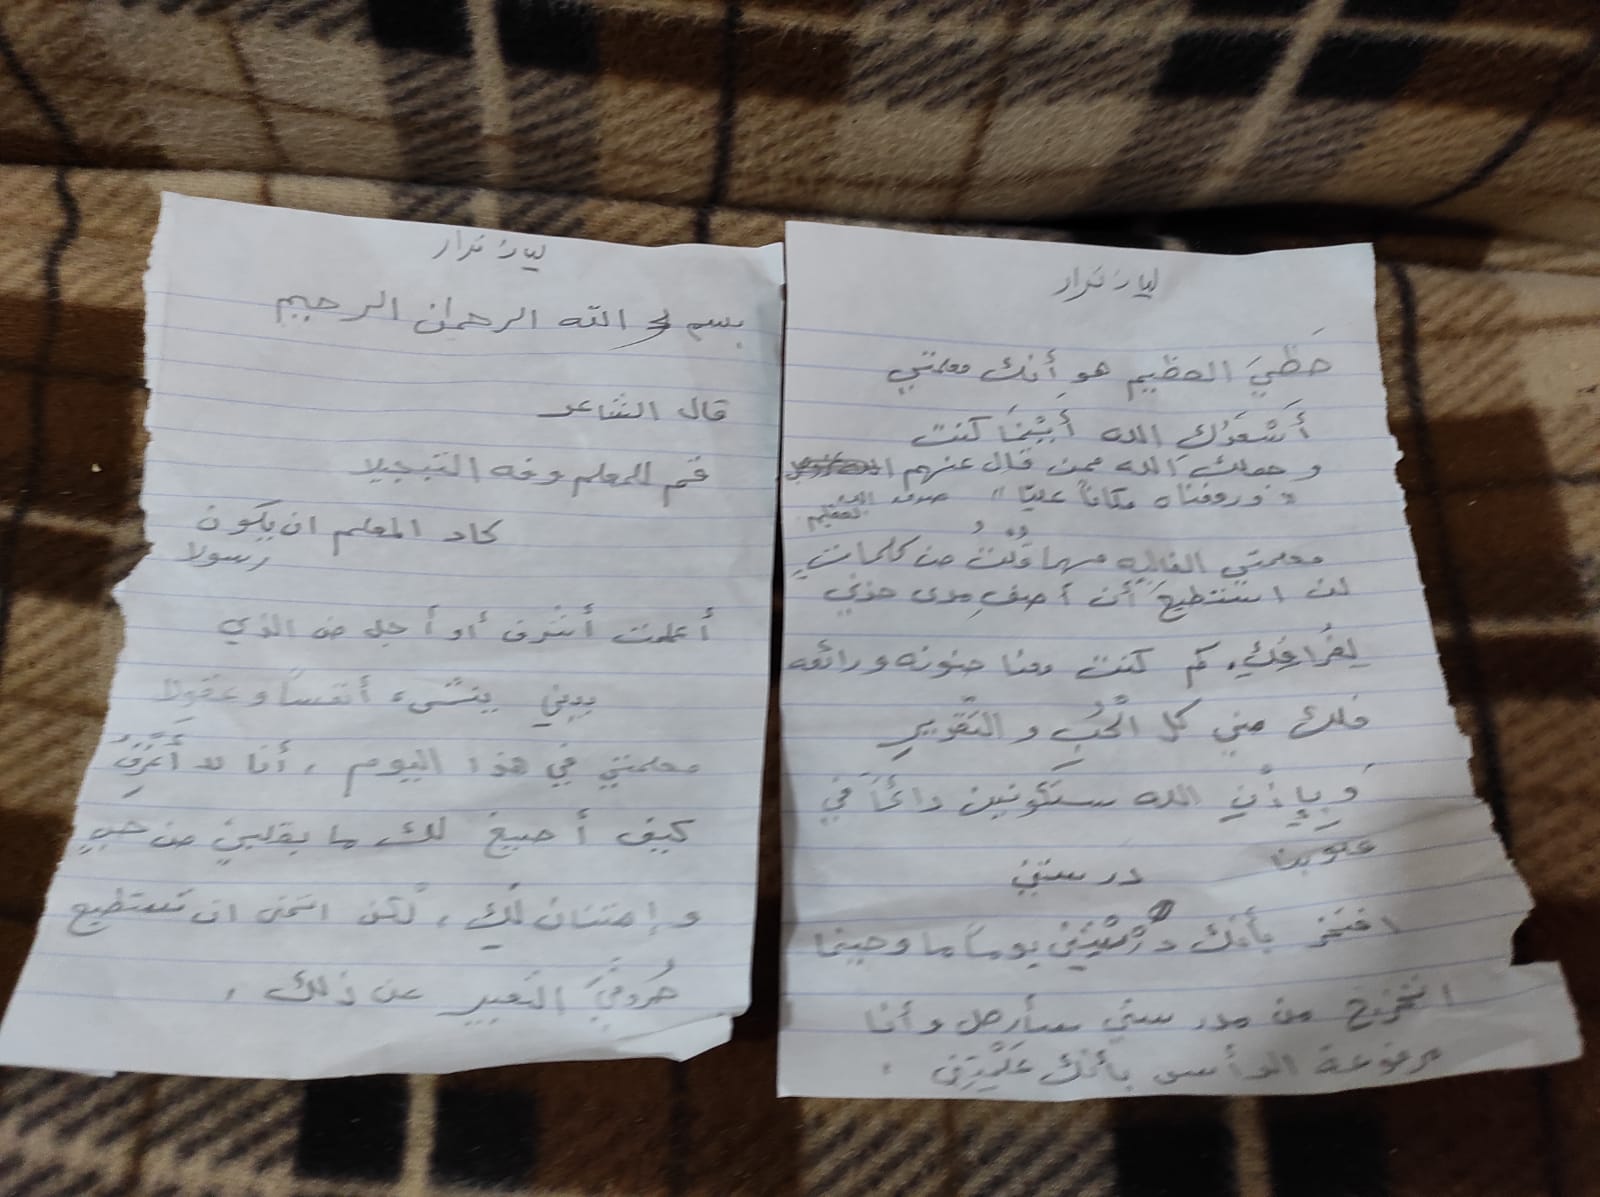 ليان نزار
بسم الله الرحمان الرحيم
قال الشاعر
قم للمعلم وفه التبجيلا
كاد المعلم ان يكون
رسولا
أعلمت أشرف أو أجل من الذي
يبني ينشىء أنفساً وعقولا
معلمتي في هذا اليوم ، أنا لا أَعْرِفُ
كيف أصيغ لك ما بقلبي من حبي
و إمتنان لَكِ ، لكن اتمنى ان تستطيع
حُروفيَ التعبير عن ذلك .
ليان نزار
حَظّيَ العظيم هو أَنك معلمتي
أَسْعَدَكِ الله أَيْنَمَا كنت
و جعلك الله ممن قال عنهم
" ورفعناه مكاناً عليّا " صدق الله
العظيم
معلمتي الغاليه مهما قُلْتُ من كلماتٍ
لن استطيعَ أن أصفِ مدى حزني
لِفُراقِكِ، كم كنت معنا حنونه ورائعه
فلك مني كل الحُبِ و التقديرِ
وَبِإِذْنِ الله ستكونين دائماً في
قلوبنا درستني
افتخر بأنك يوماً ما وحينما
اتخرج من مدرستي سأرحل وأنا
مرفوعة الرأس بأنك عَلَّمْتِني .